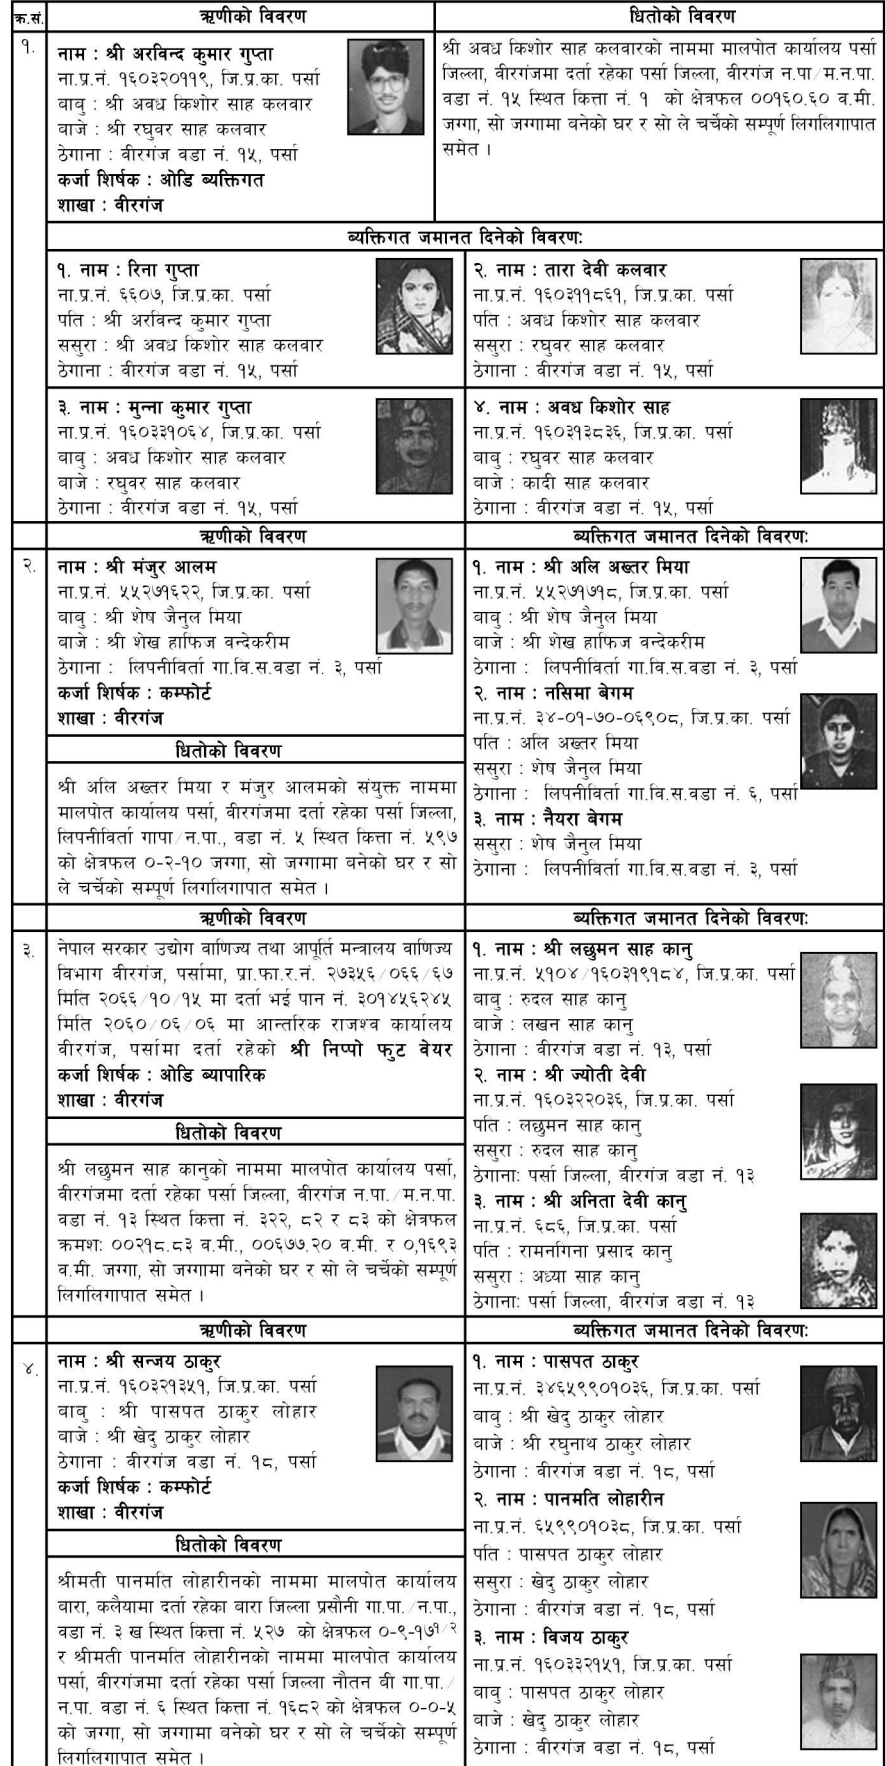 क्र.सं.
ऋणीको विवरण
धितोको विवरण
१.
नाम : श्री अरविन्द कुमार गुप्ता
ना.प्र.नं. १६०३२०११९, जि.प्र.का. पर्सा
बाबु : श्री अवध किशोर साह कलवार
बाजे : श्री रघुवर साह कलवार
ठेगाना : वीरगंज वडा नं. १५, पर्सा
कर्जा शिर्षक : ओडि ब्यक्तिगत
शाखा : वीरगंज
श्री अवध किशोर साह कलवारको नाममा मालपोत कार्यालय पर्सा
जिल्ला, वीरगंजमा दर्ता रहेका पर्सा जिल्ला, वीरगंज न.पा/म.न.पा.
वडा नं. १५ स्थित कित्ता नं. १ को क्षेत्रफल ००१६०.६० व.मी.
जग्गा, सो जग्गामा बनेको घर र सो ले चर्चेको सम्पूर्ण लिगलिगापात
समेत ।
ब्यक्तिगत जमानत दिनेको विवरणः
१. नाम : रिना गुप्ता
ना.प्र.नं. ६६०७, जि.प्र.का. पर्सा
पति : श्री अरविन्द कुमार गुप्ता
ससुरा : श्री अवध किशोर साह कलवार
ठेगाना : वीरगंज वडा नं. १५, पर्सा
२. नाम : तारा देवी कलवार
ना.प्र.नं. १६०३११८६१, जि.प्र.का. पर्सा
पति : अवध किशोर साह कलवार
ससुरा : रघुवर साह कलवार
ठेगाना : वीरगंज वडा नं. १५, पर्सा
३. नाम : मुन्ना कुमार गुप्ता
ना.प्र.नं. १६०३३१०६४, जि.प्र.का. पर्सा
बाबु : अवध किशोर साह कलवार
बाजे : रघुवर साह कलवार
ठेगाना : वीरगंज वडा नं. १५, पर्सा
४. नाम : अवध किशोर साह
ना.प्र.नं. १६०३१३८३६, जि.प्र.का. पर्सा
बाबु : रघुवर साह कलवार
बाजे : कादी साह कलवार
ठेगाना : वीरगंज वडा नं. १५, पर्सा
ऋणीको विवरण
ब्यक्तिगत जमानत दिनेको विवरणः
२.
नाम : श्री मंजुर आलम
ना.प्र.नं. ५५२७१६२२, जि.प्र.का. पर्सा
बाबु : श्री शेष जैनुल मिया
बाजे : श्री शेख हाफिज वन्देकरीम
ठेगाना : लिपनीविर्ता गा.वि.स.वडा नं. ३, पर्सा
कर्जा शिर्षक : कम्फोर्ट
शाखा : वीरगंज
धितोको विवरण
श्री अलि अख्तर मिया र मंजुर आलमको संयुक्त नाममा
मालपोत कार्यालय पर्सा, वीरगंजमा दर्ता रहेका पर्सा जिल्ला,
लिपनीविर्ता गापा/न.पा., वडा नं. ५ स्थित कित्ता नं. ५९७
को क्षेत्रफल ०-२-१० जग्गा, सो जग्गामा बनेको घर र सो
ले चर्चेको सम्पूर्ण लिगलिगापात समेत ।
१. नाम : श्री अलि अख्तर मिया
ना.प्र.नं. ५५२७१७१८, जि.प्र.का. पर्सा
बाबु : श्री शेष जैनुल मिया
बाजे : श्री शेख हाफिज वन्देकरीम
ठेगाना : लिपनीविर्ता गा.वि.स.वडा नं. ३, पर्सा
२. नाम : नसिमा बेगम
ना.प्र.नं. ३४-०१-७०-०६९०८, जि.प्र.का. पर्सा
पति : अलि अख्तर मिया
ससुरा : शेष जैनुल मिया
ठेगाना : लिपनीविर्ता गा.वि.स.वडा नं. ६, पर्सा
३. नाम : नैयरा बेगम
ससुरा : शेष जैनुल मिया
ठेगाना : लिपनीविर्ता गा.वि.स.वडा नं. ३, पर्सा
ऋणीको विवरण
ब्यक्तिगत जमानत दिनेको विवरणः
३.
नेपाल सरकार उद्योग वाणिज्य तथा आपूर्ति मन्त्रालय वाणिज्य
विभाग वीरगंज, पर्सामा, प्रा.फा.र.नं. २७३५६/०६६/६७
मिति २०६६/१०/१५ मा दर्ता भई पान नं. ३०१४५६२४५
मिति २०६०/०६/०६ मा आन्तरिक राजश्व कार्यालय
वीरगंज, पर्सामा दर्ता रहेको श्री निप्पो फुट वेयर
कर्जा शिर्षक : ओडि ब्यापारिक
शाखा : वीरगंज
धितोको विवरण
श्री लछुमन साह कानुको नाममा मालपोत कार्यालय पर्सा,
वीरगंजमा दर्ता रहेका पर्सा जिल्ला, वीरगंज न.पा./म.न.पा.
वडा नं. १३ स्थित कित्ता नं. ३२२, ८२ र ८३ को क्षेत्रफल
क्रमशः ००२१८.८३ व.मी., ००६७७.२० व.मी. र ०,१६९३
व.मी. जग्गा, सो जग्गामा बनेको घर र सो ले चर्चेको सम्पूर्ण
लिगलिगापात समेत ।
१. नाम : श्री लछुमन साह कानु
ना.प्र.नं. ५१०४/१६०३१९१८४, जि.प्र.का. पर्सा
बाबु : रुदल साह कानु
बाजे : लखन साह कानु
ठेगाना : वीरगंज वडा नं. १३, पर्सा
२. नाम : श्री ज्योती देवी
ना.प्र.नं. १६०३२२०३६, जि.प्र.का. पर्सा
पति : लछुमन साह कानु
ससुरा : रुदल साह कानु
ठेगानाः पर्सा जिल्ला, वीरगंज वडा नं. १३
३. नाम : श्री अनिता देवी कानु
ना.प्र.नं. ६८६, जि.प्र.का. पर्सा
पति : रामनगिना प्रसाद कानु
ससुरा : अध्या साह कानु
ठेगानाः पर्सा जिल्ला, वीरगंज वडा नं. १३
ऋणीको विवरण
ब्यक्तिगत जमानत दिनेको विवरणः
४.
नाम : श्री सन्जय ठाकुर
ना.प्र.नं. १६०३२१३५१, जि.प्र.का. पर्सा
बाबु : श्री पासपत ठाकुर लोहार
बाजे : श्री खेदु ठाकुर लोहार
ठेगाना : वीरगंज वडा नं. १८, पर्सा
कर्जा शिर्षक : कम्फोर्ट
शाखा : वीरगंज
धितोको विवरण
श्रीमती पानमति लोहारीनको नाममा मालपोत कार्यालय
बारा, कलैयामा दर्ता रहेका बारा जिल्ला प्रसौनी गा.पा./न.पा.,
वडा नं. ३ ख स्थित कित्ता नं. ५२७ को क्षेत्रफल ०-९-१७१/२
र श्रीमती पानमति लोहारीनको नाममा मालपोत कार्यालय
पर्सा, वीरगंजमा दर्ता रहेका पर्सा जिल्ला नौतन वी गा.पा./
न.पा. वडा नं. ६ स्थित कित्ता नं. १६८२ को क्षेत्रफल ०-०-५
को जग्गा, सो जग्गामा बनेको घर र सो ले चर्चेको सम्पूर्ण
लिगलिगापात समेत ।
१. नाम : पासपत ठाकुर
ना.प्र.नं. ३४६५९९०१०३६, जि.प्र.का. पर्सा
बाबु : श्री खेदु ठाकुर लोहार
बाजे : श्री रघुनाथ ठाकुर लोहार
ठेगाना : वीरगंज वडा नं. १८, पर्सा
२. नाम : पानमति लोहारीन
ना.प्र.नं. ६५९९०१०३८, जि.प्र.का. पर्सा
पति : पासपत ठाकुर लोहार
ससुरा : खेदु ठाकुर लोहार
ठेगाना : वीरगंज वडा नं. १८, पर्सा
३. नाम : विजय ठाकुर
ना.प्र.नं. १६०३३२१५१, जि.प्र.का. पर्सा
बाबु : पासपत ठाकुर लोहार
बाजे : खेदु ठाकुर लोहार
ठेगाना : वीरगंज वडा नं. १८, पर्सा